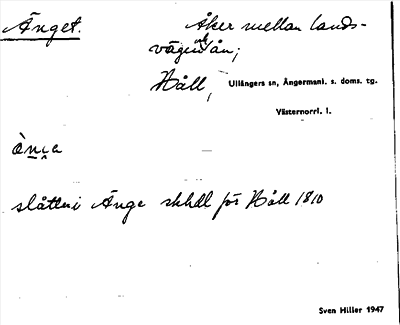 Änget. Åker mellan lands-
vägen och ån;
Håll, Ullångers sn, Ångermanl. s. doms. tg.
Västernorrl. l.
slåtten i Änge skhdl för Håll 1810
Sven Hiller 1947